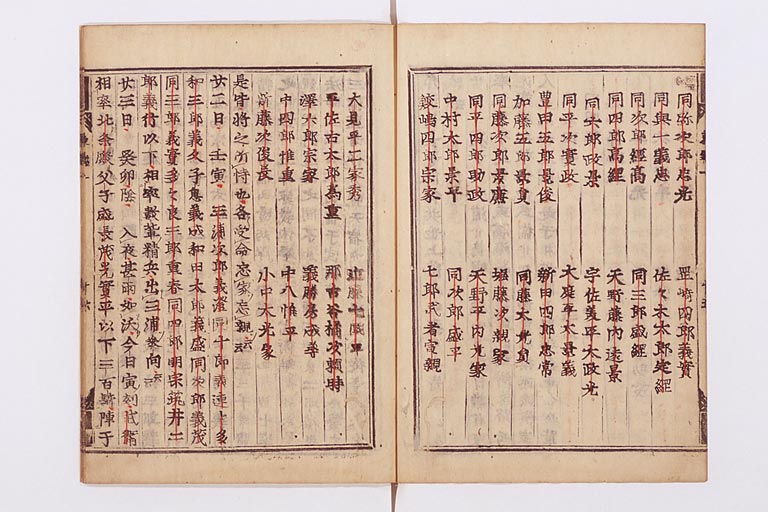 同弥次郎忠光　　罡﨑四郎義實
同與一義忠　　佐々木太郎定綱
同次郎經高　　同三郎盛綱
同四郎高綱　　天野藤内遠景
同六郎政景　　宇佐美平太政光
同平次實政　　大庭平太景義
豊田五郎景俊　　新田四郎忠常
加藤五郎景員　　同藤太光員
同藤次郎景廉　　堀藤次親家
同平四郎助政　　天野平内光家
中村太郎景平　　同次郎盛平
鮫嶋四郎宗家　　七郎武者宣親
大見平二家秀　　近藤七國平
平佐古太郎為重　　那古谷橘次頼時
澤六郎宗家　　義勝房成尋
中四郎惟重　　中八惟平
新藤次俊長　　小中太光家
是皆將之所恃也各受命忘家忘親云
廿二日　壬寅　三浦次郎義澄同十郎義連大多
和三郎義久子息義成和田太郎義盛同次郎義茂
同三郎義實多々良三郎重春同四郎明宗筑井二
郎義行以下相率數輩精兵出三浦參向云
廿三日　癸卯陰　入夜甚雨如沃今日寅刻武衛
相率北条殿父子盛長茂光實平以下三百騎陣于